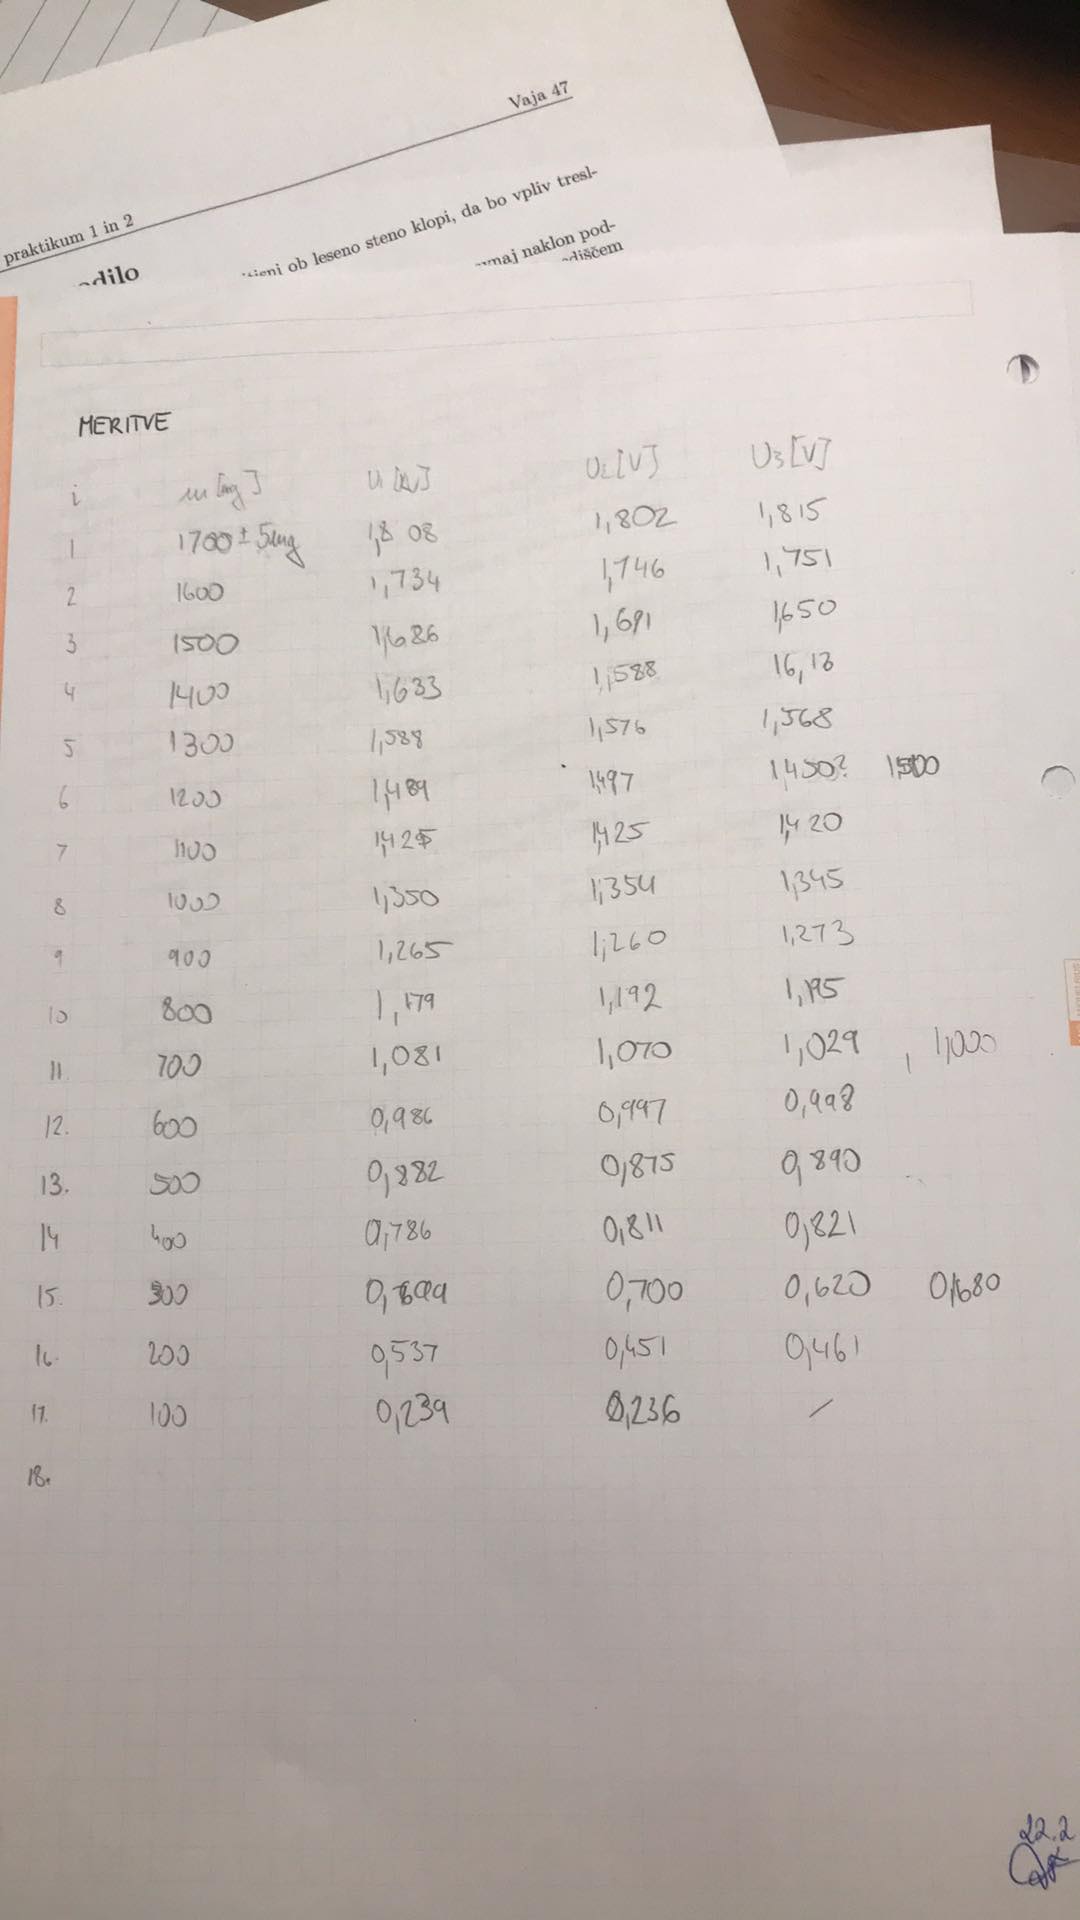 Vaja 47
praktikum 1 in 2
odilo
ob leseno steno klopi, da bo vpliv tresl-
naklon pod-
MERITVE
i m [mg] U1 [V] U2 [V] U3 [V]
1 1700 ± 5mg 1,808 1,802 1,815
2 1600 1,734 1,746 1,751
3 1500 1,686 1,691 1,650
4 1400 1,633 1,588 16,13
5 1300 1,588 1,576 1,568
6 1200 1,489 1,497 1,450? 1,500
7 1100 1,425 1,425 1,420
8 1000 1,350 1,354 1,345
9 900 1,265 1,260 1,273
10 800 1,179 1,192 1,195
11. 700 1,081 1,070 1,029 , 1,000
12. 600 0,986 0,997 0,998
13. 500 0,882 0,875 0,890
14 400 0,786 0,811 0,821
15. 300 0,699 0,700 0,620 0,680
16. 200 0,537 0,451 0,461
17. 100 0,239 0,236 /
18.
22.2